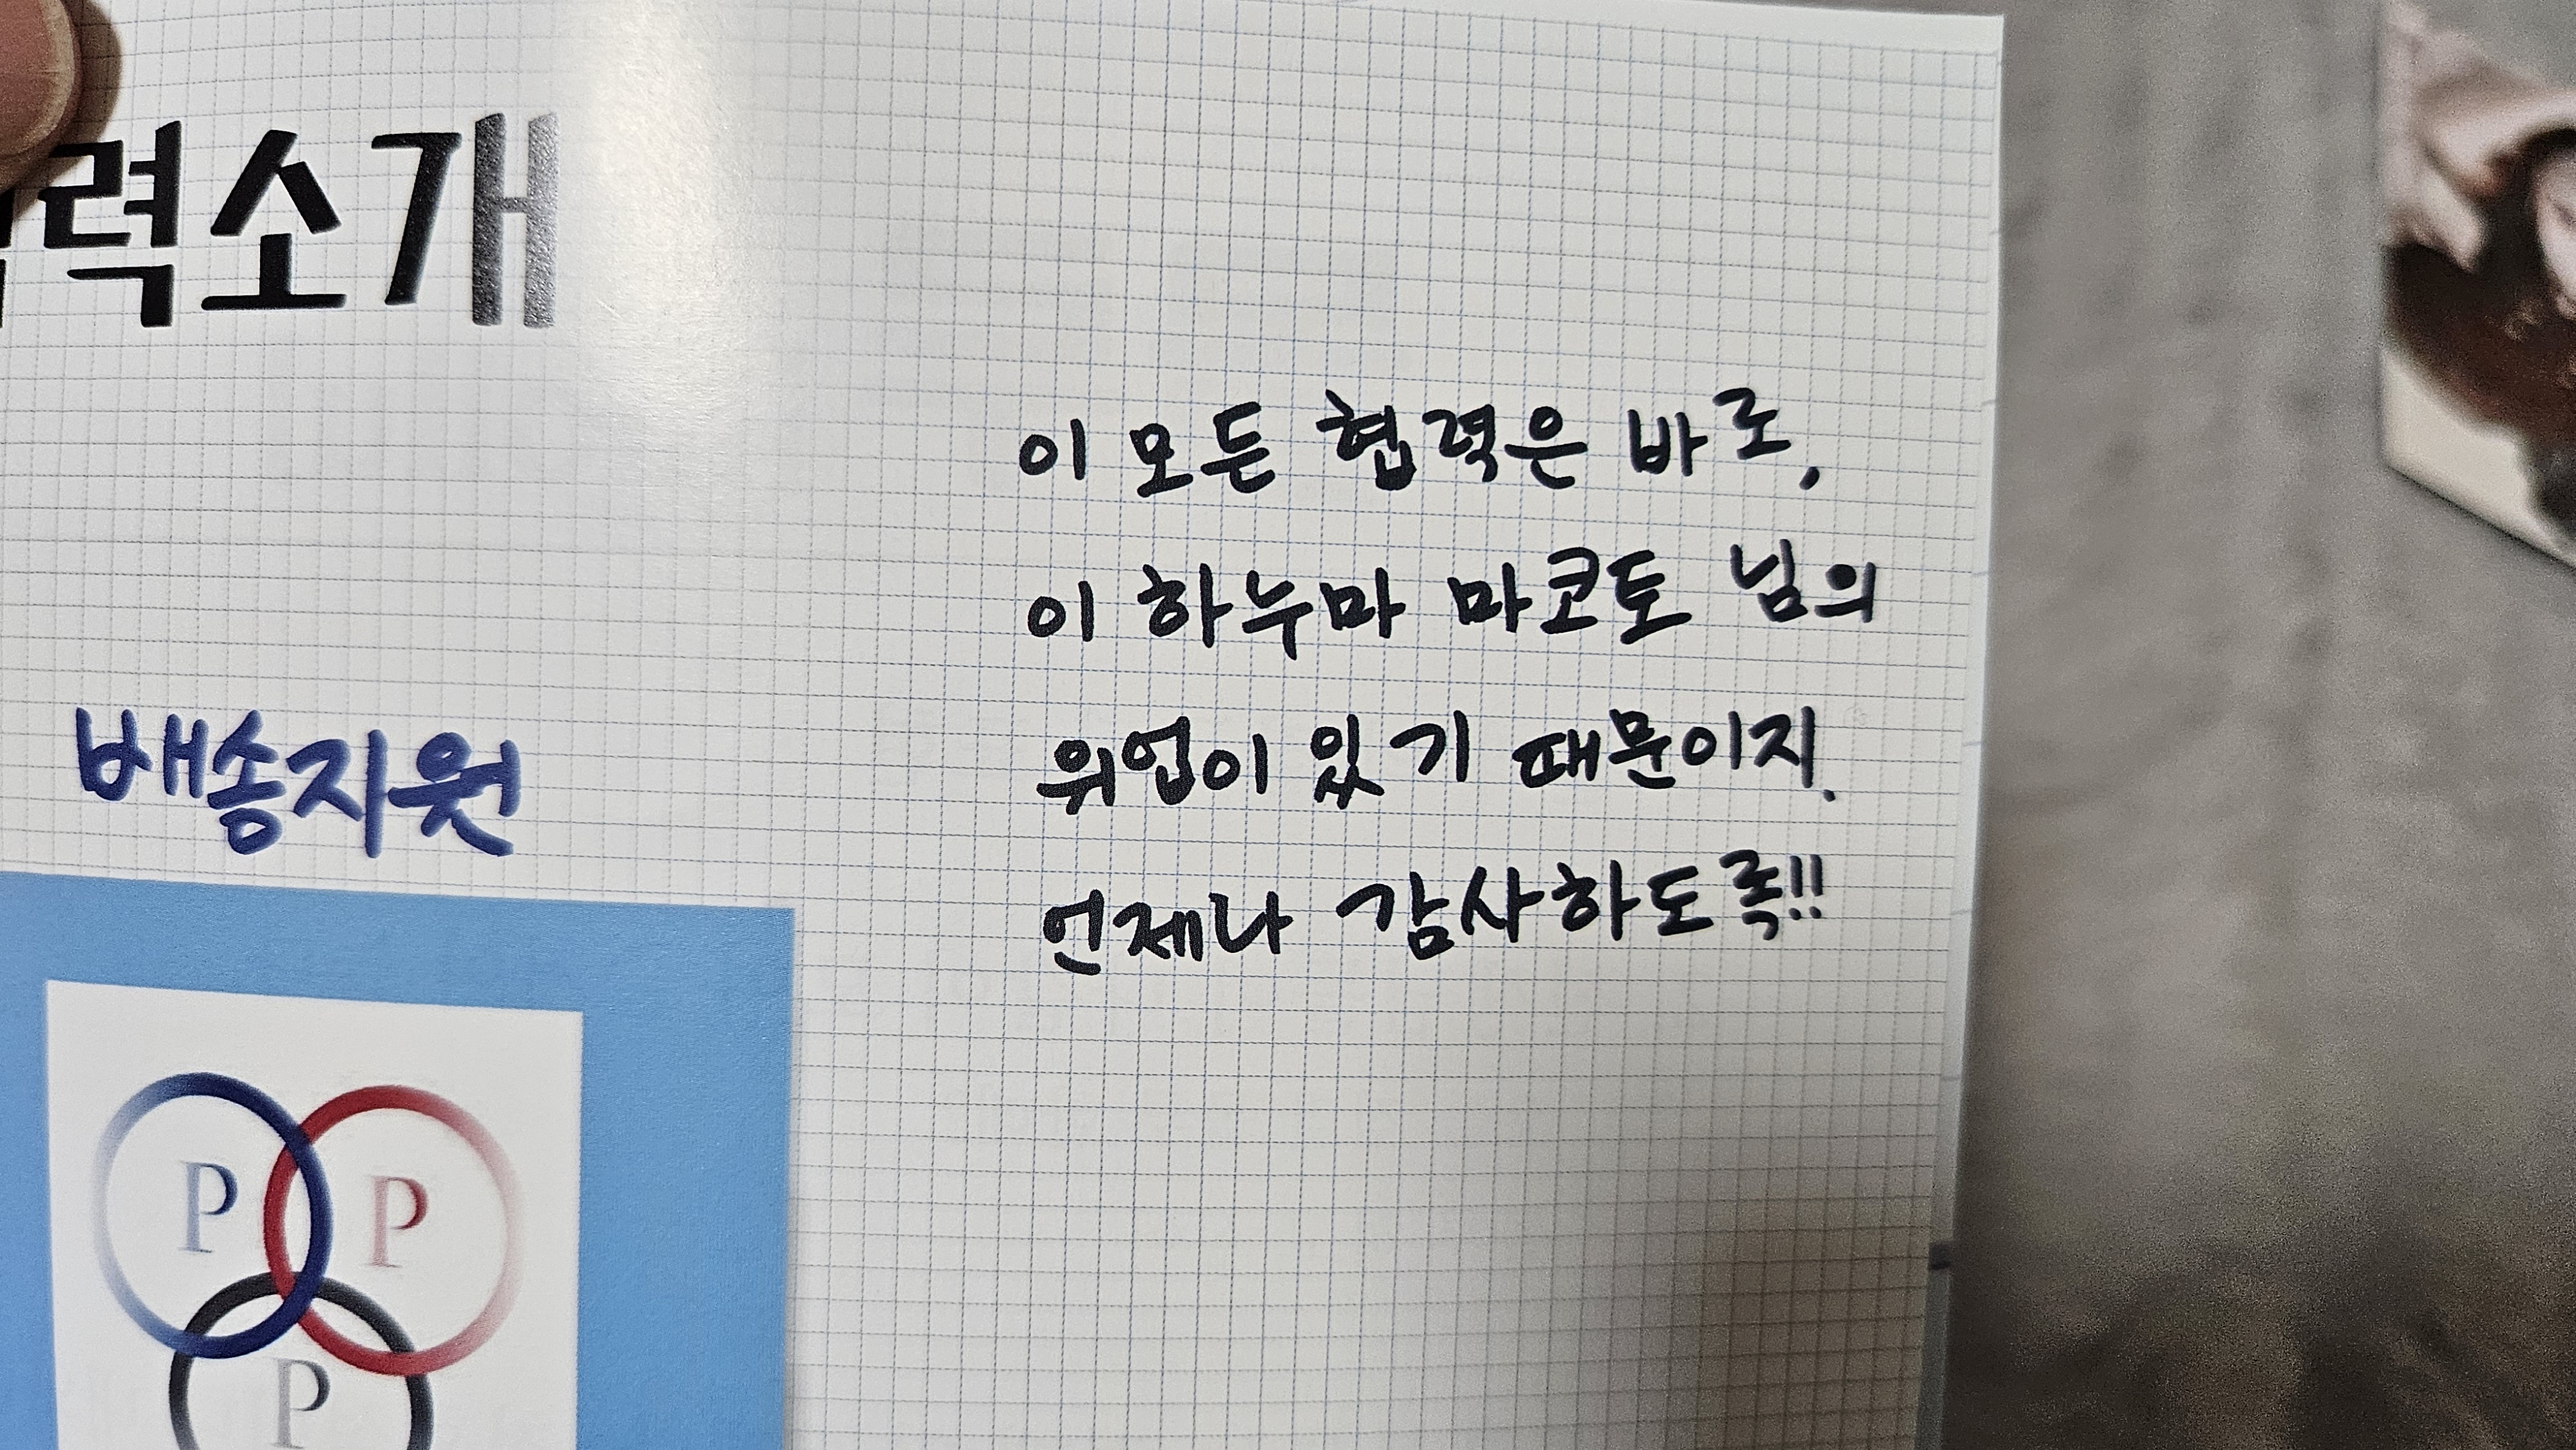 력소개
이 모든 협력은 바로,
이 하누마 마코토 님의
위업이 있기 때문이지.
언제나 감사하도록!!
배송지원
P P
P